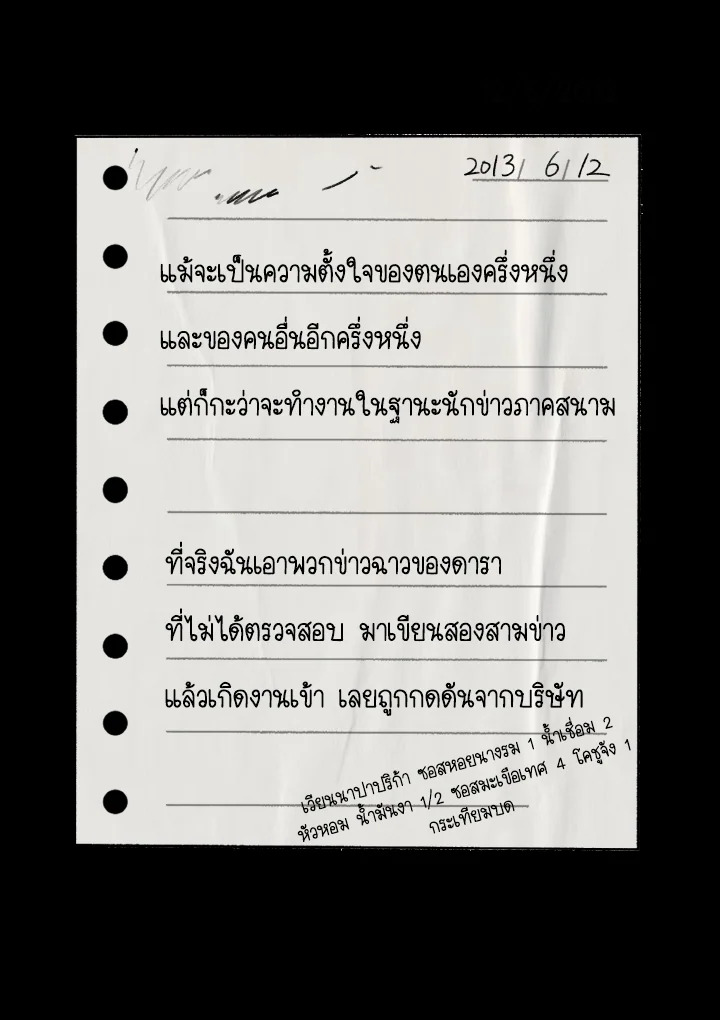 2013/ 6/ 12
แม้จะเป็นความตั้งใจของตนเองครึ่งหนึ่ง
และของคนอื่นอีกครึ่งหนึ่ง
แต่ก็กะว่าจะทำงานในฐานะนักข่าวภาคสนาม
ที่จริงฉันเอาพวกข่าวฉาวของดารา
ที่ไม่ได้ตรวจสอบ มาเขียนสองสามข่าว
แล้วเกิดงานเข้า เลยถูกกดดันจากบริษัท
เวียนนาปาปริก้า ซอสหอยนางรม 1 น้ำเชื่อม 2
หัวหอม น้ำมันงา 1/2 ซอสมะเขือเทศ 4 โคชูจัง 1
กระเทียมบด